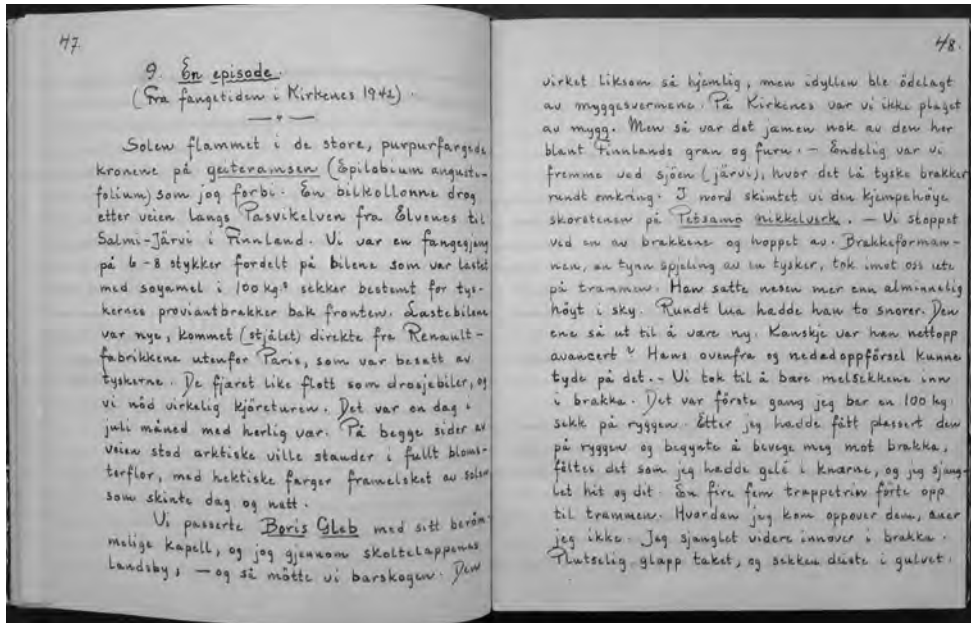 47.
9. En episode.
(Fra fangetiden i Kirkenes 1942).
Solen flammet i de store, purpurfargede
kronene på geiteramsen (Epilobium angusti-
folium) som jog forbi. En bilkollonne drog
etter veien langs Pasvikelven fra Elvenes til
Salmi-Järvi i Finnland. Vi var en fangegjeng
på 6-8 stykker fordelt på bilene som var lastet
med soyamel i 100 kg.s sekker bestemt for tys-
kernes proviantbrakker bak fronten. Lastebilene
var nye, kommet (stjålet) direkte fra Renault-
fabrikkene utenfor Paris, som var besatt av
tyskerne. De fjæret like flott som drosjebiler, og
vi nöd virkelig kjöreturen. Det var en dag i
juli måned med herlig vær. På begge sider av
veien stod arktiske ville stauder i fullt bloms-
terflor, med hektiske farger framelsket av solen
som skinte dag og natt.
Vi passerte Boris Gleb med sitt beröm-
melige kapell, og jog gjennom skoltelappenes
landsby, — og så mötte vi barskogen. Den
48.
virket liksom så hjemlig, men idyllen ble ödelagt
av myggesvermene. På Kirkenes var vi ikke plaget
av mygg. Men så var det jamen nok av den her
blant Finnlands gran og furu. — Endelig var vi
fremme ved sjöen (järvi), hvor det lå tyske brakker
rundt omkring. I nord skimtet vi den kjempehöye
skorstenen på Petsamo nikkelverk. — Vi stoppet
ved en av brakkene og hoppet av. Brakkeforman-
nen, en tynn spjeling av en tysker, tok imot oss ute
på trammen. Han satte nesen mer enn alminnelig
höyt i sky. Rundt lua hadde han to snorer. Den
ene så ut til å være ny. Kanskje var han nettopp
avancert? Hans ovenfra og nedadoppförsel kunne
tyde på det. - Vi tok til å bære melsekkene inn
i brakka. Det var förste gang jeg bar en 100 kg.
sekk på ryggen. Etter jeg hadde fått plassert den
på ryggen og begynte å bevege meg mot brakka,
föltes det som jeg hadde gelé i knærne, og jeg sjang-
let hit og dit. En fire fem trappetrin förte opp
til trammen. Hvordan jeg kom oppover dem, aner
jeg ikke. Jeg sjanglet videre innover i brakka.
Plutselig glapp taket, og sekken deiste i gulvet.